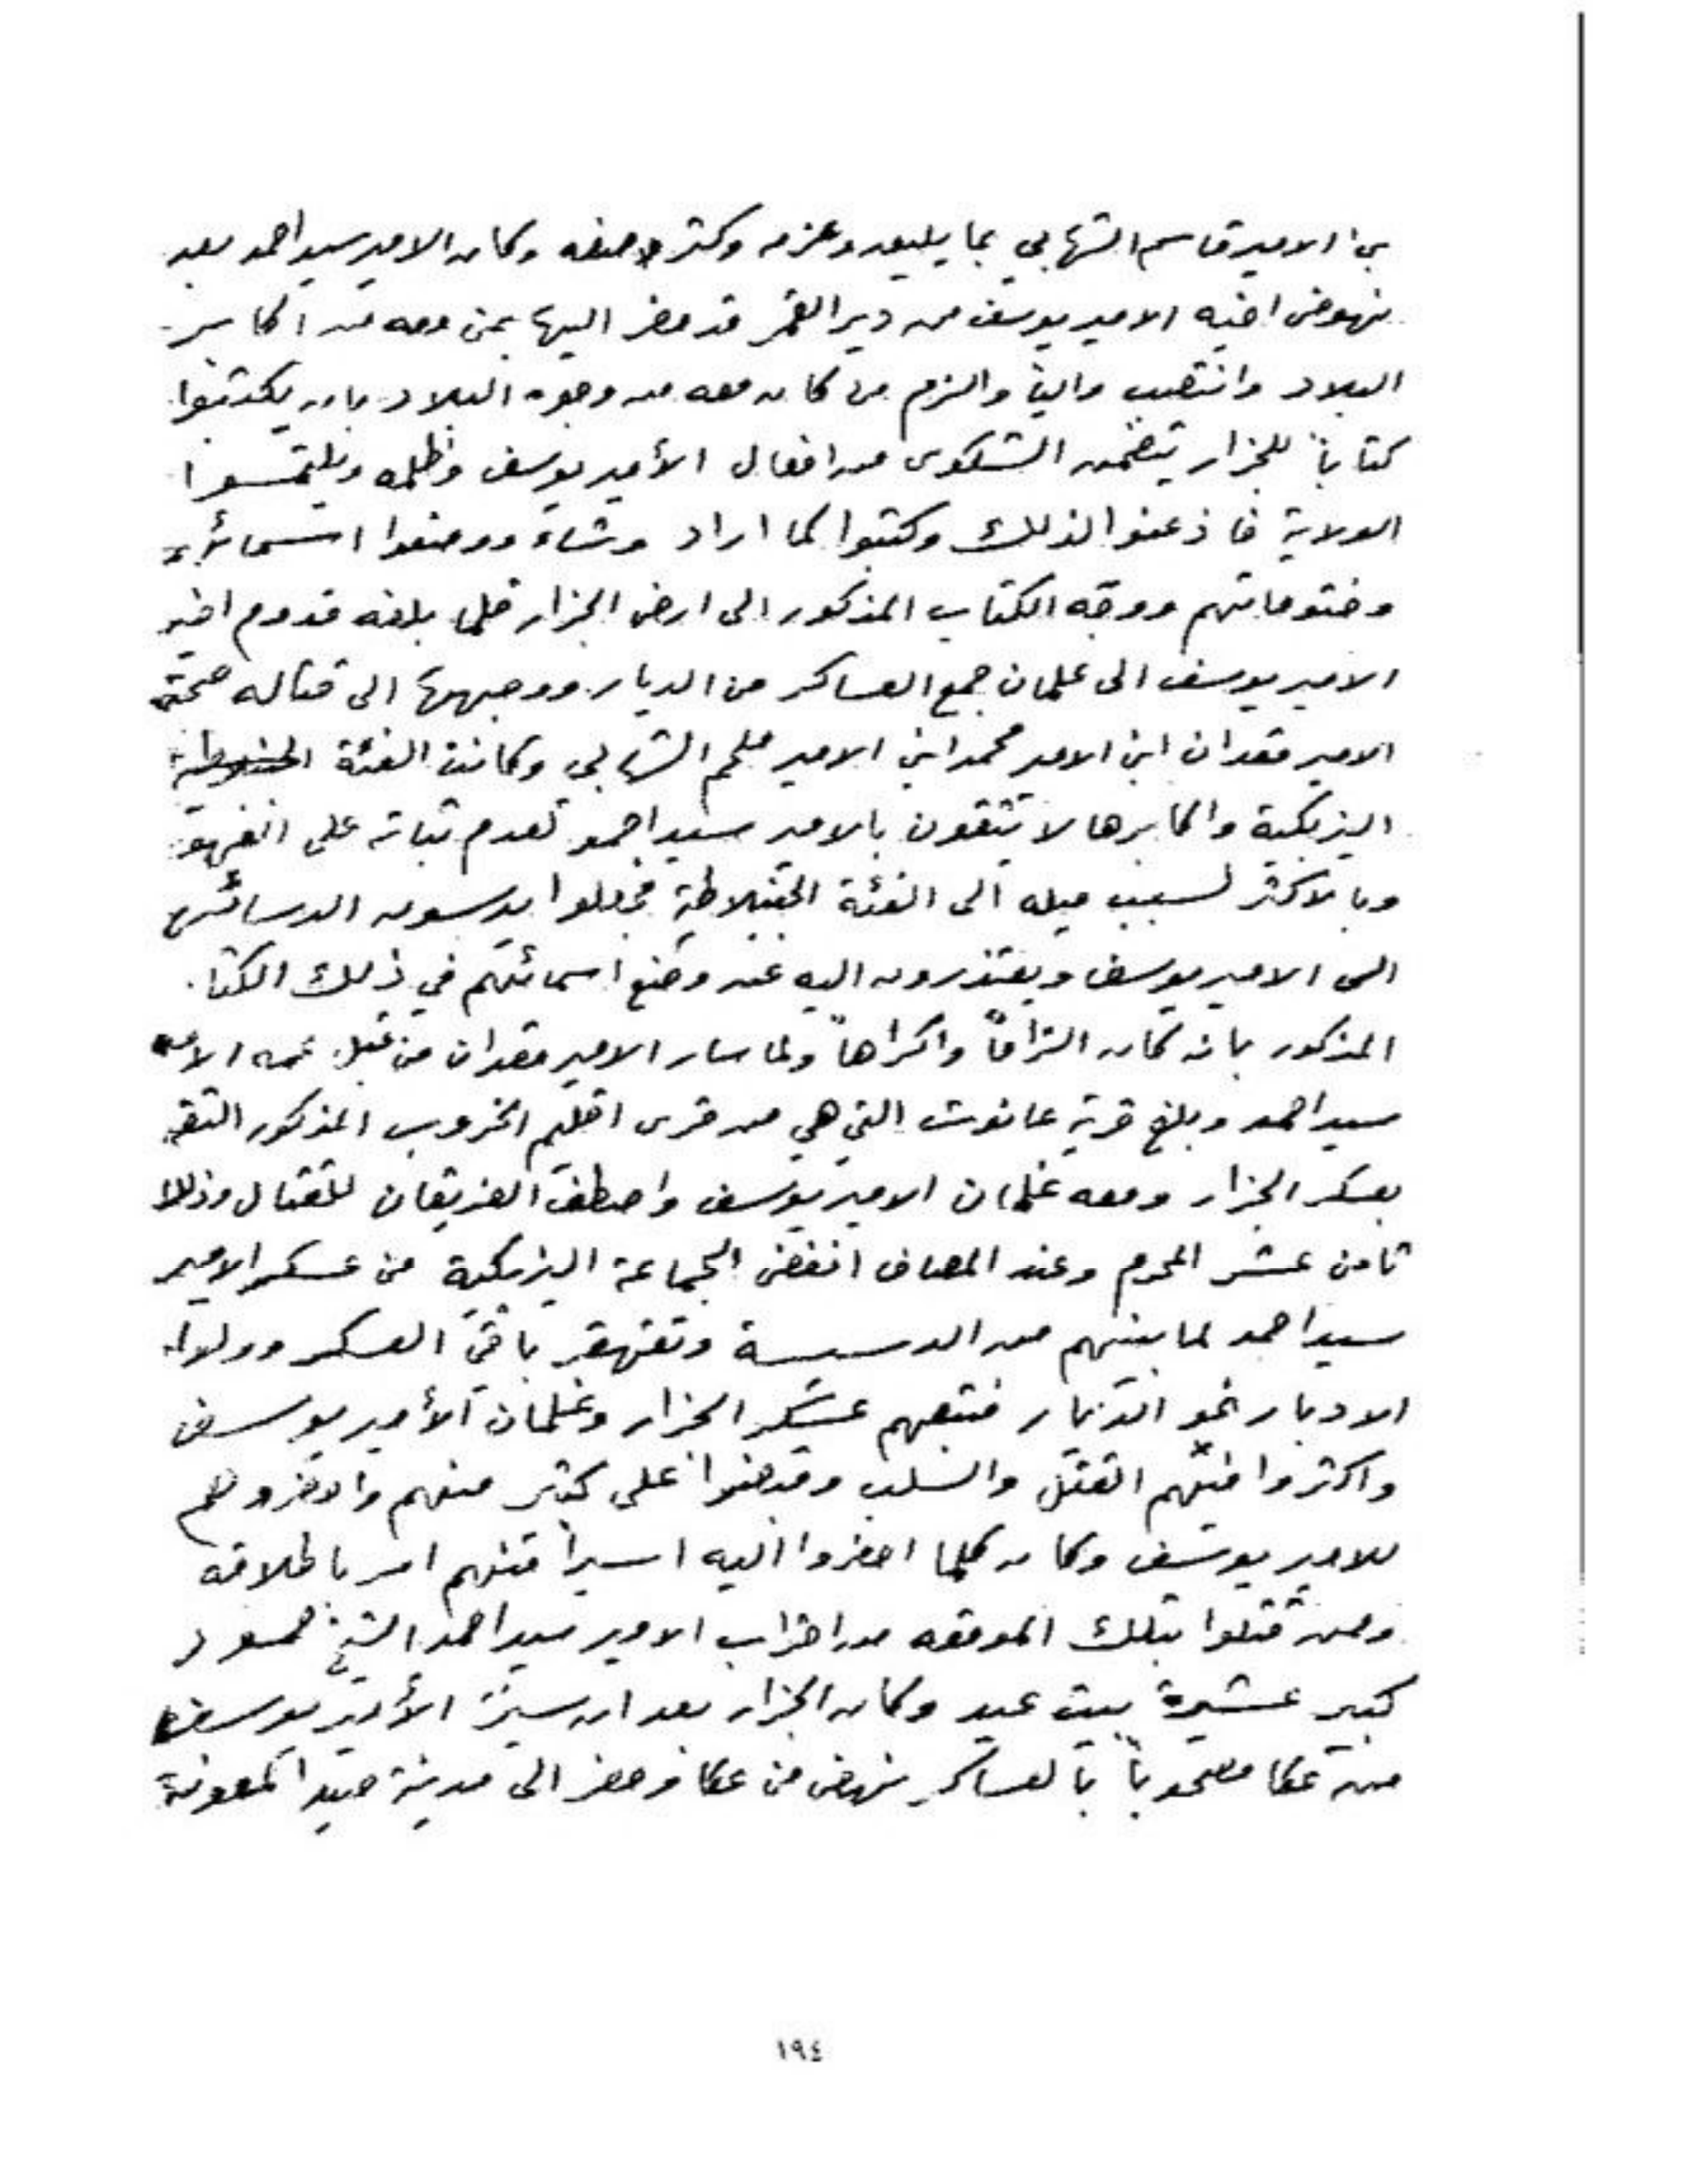 بن الامير قاسم الشهابي بما يليق وعزم وكثر وكان الامير سيد احمد بعد
نهوض اخيه الامير يوسف من دير القمر قد حضر اليها بمن معه من اكابر
البلاد وانتصب والياً والزم من كان معه من وجوه البلاد بان يكتبوا
كتاباً للجزار يتضمن الشكوى من افعال الأمير يوسف وظلمه ويلتمسوا
الولاية فاذعنوا لذلك وكتبوا كما اراد وشاء ووضعوا اسمائهم
وختوماتهم ووجّه الكتاب المذكور الى ارض الجزار فلما بلغه قدوم اخيه
الامير يوسف الى علمان جمع العساكر من الديار ووجهها الى قتاله صحبة
الامير قعدان ابن الامير محمد ابن الامير ملحم الشهابي وكانت الفئة
اليزبكية واكابرها لا يثقون بالامير سيد احمد لعدم ثباته على
وبالاكثر لسبب ميله الى الفئة الجنبلاطية فجعلوا يدسون الدسائس
الى الامير يوسف ويعتذرون اليه عن وضع اسمائهم في ذلك الكتاب
المذكور بانه كان التزاماً واكراهاً ولما سار الامير قعدان من قبل عمه الامير
سيد احمد وبلغ قرية عانوت التي هي من قرى اقليم الخروب المذكور التقى
بعسكر الجزار ومعه غلمان الامير يوسف واصطف الفريقان للقتال وذلك
ثامن عشر المحرم وعند المصاف انفض الجماعة اليزبكية من عسكر الامير
سيد احمد لما بينهم من الدسيسة وتقهقر باقي العسكر وولوا
الادبار نحو الديار فتبعهم عسكر الجزار وغلمان الأمير يوسف
واكثروا فيهم القتل والسلب وقبضوا على كثير منهم واحضروهم
للامير يوسف وكان كلما احضروا اليه اسيراً منهم امر باطلاقه
وممن قتلوا بتلك الموقعه من احزاب الامير سيد احمد الشيخ حمود
كبير عشيرة بيت عيد وكان الجزار بعد ان سيّر الأمير يوسف
من عكا مصحوباً بالعساكر نهض من عكا وحضر الى مدينة صيدا لمعونة
١٩٤